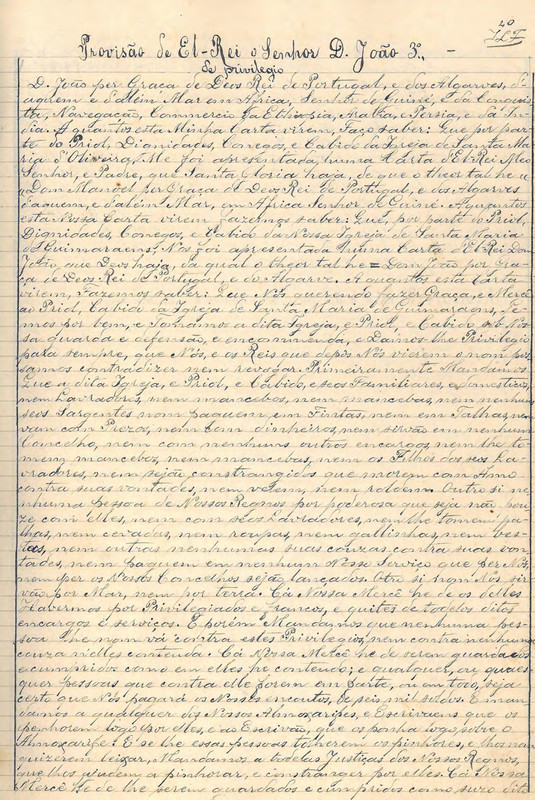 Provisão de El-Rei o Senhor D. João 3º, -
de privilegio
D. João per Graça de Deos Rei de Portugal, e dos Algarves, d'a-
quem e d'alem Mar em Africa, Senhor de Guiné, e da Conquis-
ta, Navegação, Commercio da Ethiopia, Arabia, e Persia, e da In-
dia. A quantos esta Minha Carta virem, Faço saber: Que por par-
te do Priol, Dignidades, Conegos, e Cabido da Igreja de Santa Ma-
ria d'Oliveira, Me foi apresentada, huma Carta d'El-Rei Meo
Senhor, e Padre, que Santa Gloria haja, de que o theor tal he:
Dom Manoel por Graça de Deos Rei de Portugal, e dos Algarves
daquem, e dalém Mar, em Africa Senhor de Guiné. A quantos
esta Nossa Carta virem Fazemos saber: Que, por parte do Priol,
Dignidades, Conegos, e Cabido da Nossa Igreja de Santa Maria
de Guimaraens, Nos foi apresentada huma Carta d'El Rei Dom
João, que Deos haja, da qual o theor tal he = Dom João por Gra-
ça de Deos, Rei de Portugal, e do Algarve. A quantos esta Carta
virem, Fazemos saber: Que Nós querendo fazer Graça, e Mercê
ao Priol, Cabido da Igreja de Santa Maria de Guimaraens, Te-
mos por bem, e Tomamos a dita Igreja, e Priol, e Cabido sob Nos-
sa guarda e defensão, e encommenda, e Damos-lhe Privilegio
para sempre, que Nós, e os Reis que depois Nós vierem o nom pos-
samos contradizer nem revogar. Primeiramente Mandamos
Que a dita Igreja, e Priol, e Cabido, e seos Familiares, e Domesticos,
nem Lavradores, nem mancebos, nem mancebas, nem nenhuns
seus Sargentes nom paguem, em Fintas, nem em Talhas, nem
vam com Prezos, nem com dinheiros, nem servão em nenhum
Concelho, nem com nenhuns outros encargos, nem lhe to-
mem, mancebos, nem mancebas, nem os Filhos dos seos La-
vradores, nem sejão constrangidos que morem com Amo
contra suas vontades, nem velem, nem roldem. Outro si ne-
nhuma pessoa de Nossos Regnos por poderosa que seja não pou-
ze com elles, nem com seos Lavradores, nem lhe tomem pa-
lhas, nem cevadas, nem roupas, nem gallinhas, nem bes-
tas, nem outras nenhumas suas couzas contra suas von-
tades, nem paguem em nenhum Nosso Serviço que per Nós,
nem per os Nossos Concelhos sejão lançados. Otro si nom Nós sir-
vão por Mar, nem por terra. Cá Nossa Mercê he de os delles
Havermos por Privilegiados e francos, e quites de todolos ditos
encargos e serviços. E porém Mandamos que nenhuma pes-
soa lhe nom vá contra estes Privilegios, nem contra nenhuma
couza n'elles contenda. Cá Nossa Mercê he de serem guardados
e cumpridos como em elles he contendo; e qualquer, ou quaes-
quer pessoas que contra elle forem em parte, ou em todo, seja
certo que Nós pagará os Nossos encoutos, de seis mil soldos. E man-
damos a qualquer dos Nossos Almoxarifes, e Escrivaens que os
penhorem logo por elles, e ao Escrivão, que os ponha logo, sobre o
Almoxarife: E se lhe essas pessoas tolherem os pinhores, e lhos nom
quizerem leixar, Mandamos a todelas Justiças dos Nossos Regnos,
que lhos ajudem a pinhorar, e constranger por elles. Cá Nossa
Mercê he de lhe serem guardados e cumpridos como suzo dito